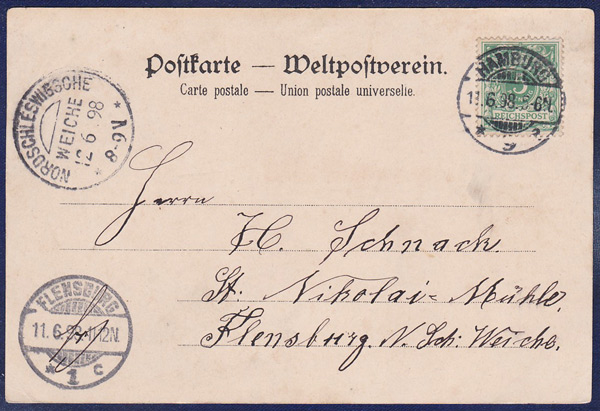 Postkarte — Weltpostverein.
Carte postale — Union postale universelle.
HAMBURG
11.6.98.5-6N.
* 9 a
5
REICHSPOST
NORDSCHLESWIGSCHE
WEICHE
12 6 98
* 8-9V *
Herrn
H. Schnack
St. Nikolai-Mühle
Flensburg N. Sch: Weiche.
FLENSBURG
11.6.98.11-12N.
* 1 c